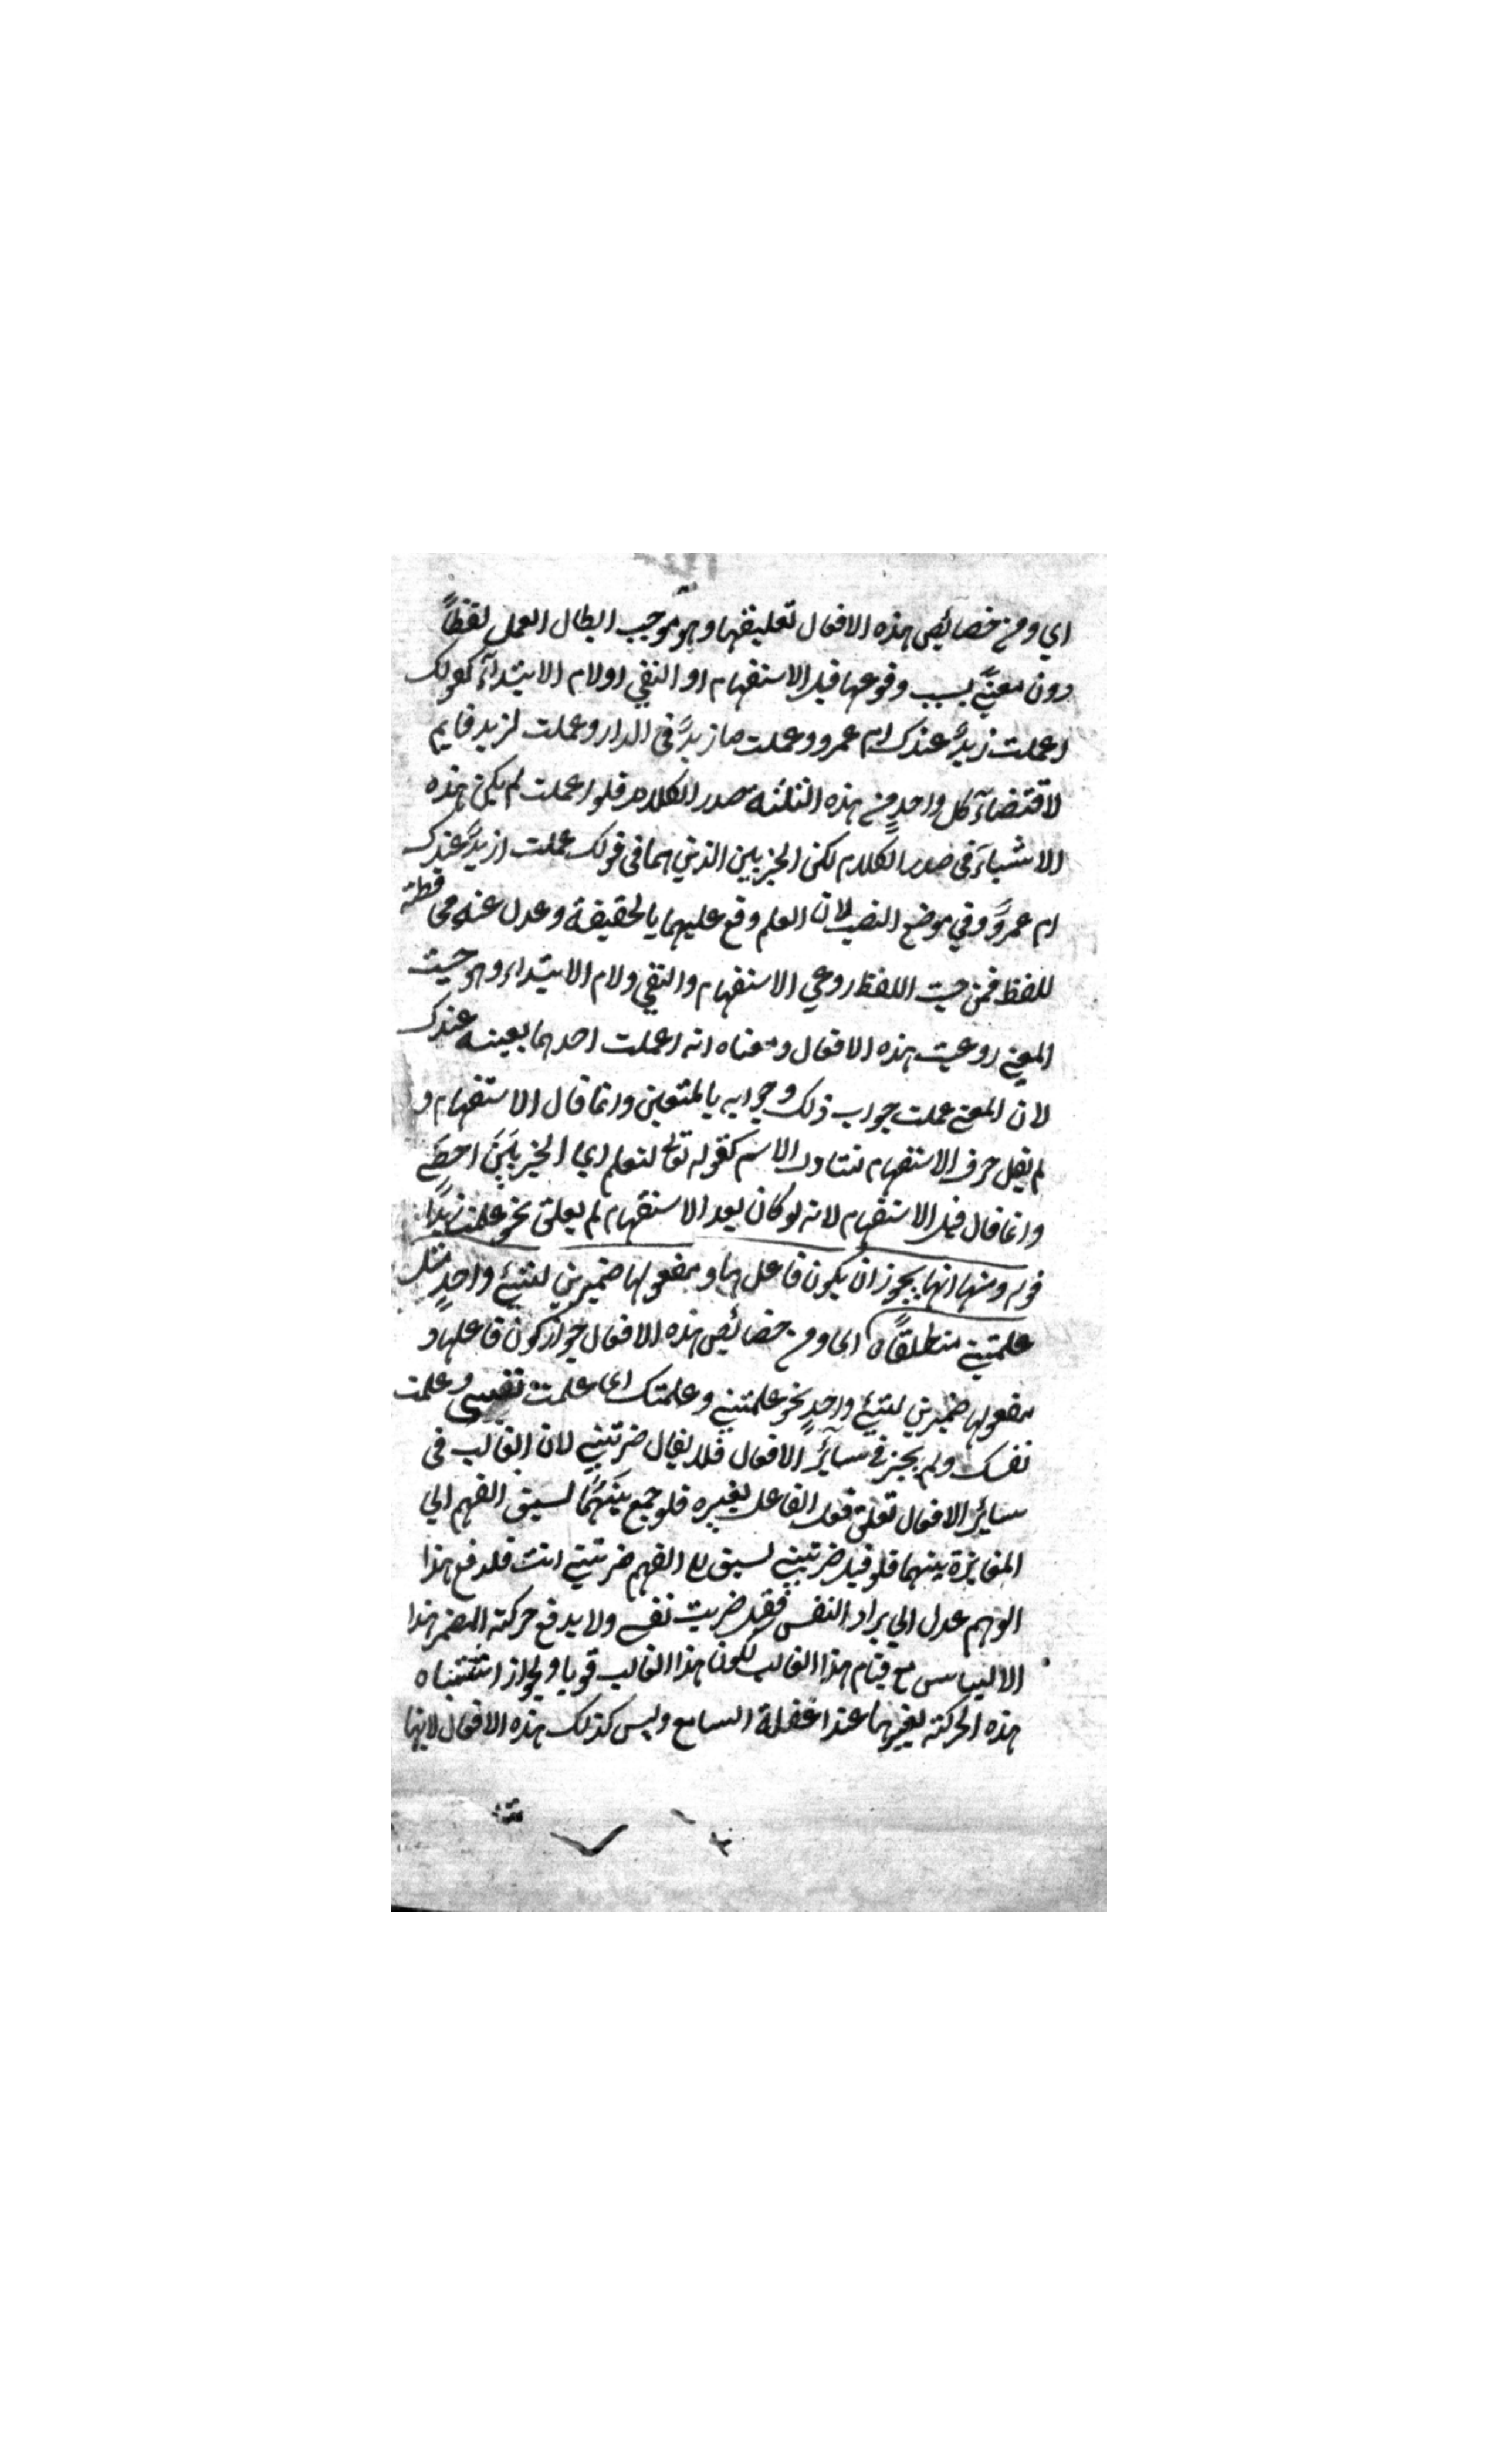 اي ومن خصائص هذه الافعال تعليقها وهو موجب ابطال العمل لفظاً
دون معنىً بسبب وقوعها قبل الاستفهام او النفي او لام الابتداء كقولك
اعملت زيدٌ عندك ام عمرو وعملت ما زيدٌ في الدار وعملت لزيد قايم
لاقتضاء كل واحدٍ من هذه الثلثة صدر الكلام فلو اعملت لم يكن هذه
الاشياء في صدر الكلام لكن الجزيين الذين هما في قولك عملت ازيدٌ عندك
ام عمروٌ وفي موضع النصب لان العلم وقع عليهما بالحقيقة وعدل عنه محافظة
للفظ فمن حيث اللفظ روعي الاستفهام والنفي ولام الابتداء وهو حيث
المعني روعيت هذه الافعال ومعناه انه اعملت احدهما بعينه عندك
لان المعني عملت جواب ذلك وجوابه بالمتعين وانما قال الاستفهام و
لم يقل حرف الاستفهام لتناول الاسم كقوله تعالى لنعلم اي الحزبَين احصَى
وانما قال قبل الاستفهام لانه لو كان بعد الاستفهام لم يعلق نحو علمت زيدًا
قوله ومنها انها يجوز ان يكون فاعلها ومفعولها ضميرين لشيئ واحدٍ مثل
علمتني منطلقًا اي ومن خصائص هذه الافعال جواز كون فاعلها و
مفعولها ضميرين لشيئ واحدٍ نحو علمتني وعلمتك اي علمت نفسي وعلمت
نفسك ولم يجز في سائر الافعال فلا يقال ضربتني لان الغالب في
سائر الافعال تعلق فعل الفاعل بغيره فلو جمع بَينَهُما لسبق الفهم الي
المغايرة بينهما فلو قيل ضربتني لسبق الفهم ضربتني انت فلدفع هذا
الوهم عدل الي يراد النفس فقيل ضربت نفسي ولا يدفع حركته المضمر هذا
الالتباس مع قيام هذا الغالب لكون هذا الغالب قويا ولجواز اشتباه
هذه الحركة بغيرها عند اغفلة السامع وليس كذلك هذه الافعال لانها